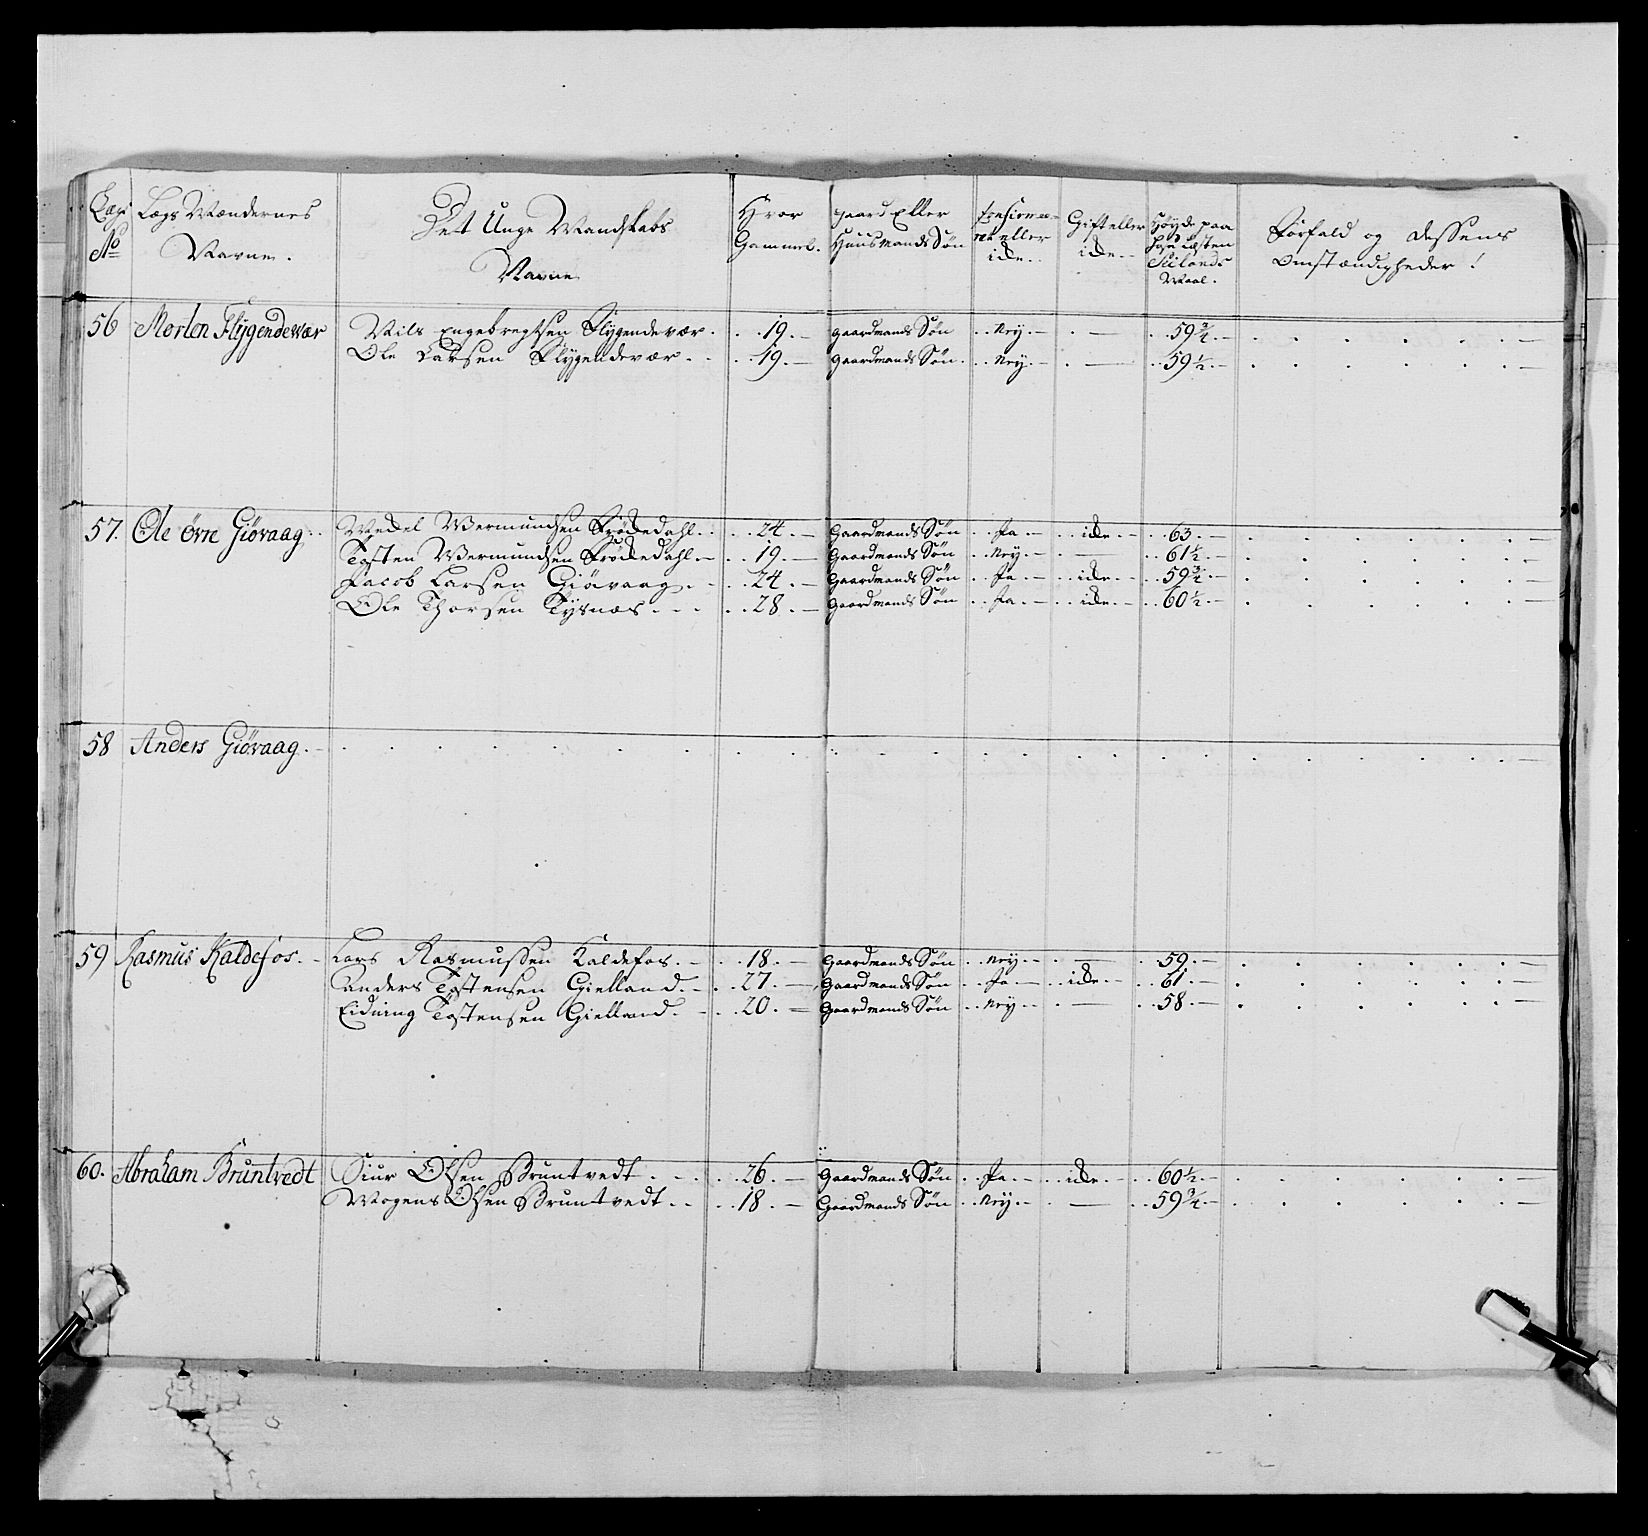 Lægs No | Lægs Mændernes Navne. | Det Unge Mandskabs Navne | Hvor Gammel. | Gaard Eller Huusmands Søn | eller icke.. | Gift eller icke.. | Høyde paa Sielands Maal. | Forfald og dessens Omstændigheder!
56 | Morten Flygendevær | Nils Engebregtsen Flygendevær. | 19. | Gaardmands Søn | Ney. | — | 59 3/4.
Ole Larsen Flygendevær. | 19. | Gaardmands Søn. | Ney. | — | 59 1/2.
57. | Ole øvre Giøvaag. | Wermundsen Frøkedahl. | 24. | Gaardmands Søn | Ja | icke | 63.
Tosten Wermundsen Frøkedahl. | 19. | Gaardmands Søn | Ney. | — | 61 1/2.
Jacob Larsen Giøvaag. | 24. | Gaardmands Søn | Ja. | icke | 59 3/4.
Ole Thorsen Tysnæs. | 28. | Gaardmands Søn | Ja. | icke | 60 1/2.
58 | Anders Giøvaag.
59 | Rasmus Kaldefos. | Lars Rasmussen Kaldefos. | 18. | Gaardmands Søn | Ney. | — | 59.
Anders Tostensen Gielland. | 27. | Gaardmands Søn | Ja | icke | 61.
Eidning Tostensen Gielland. | 20. | Gaardmands Søn | Ney | — | 58.
60. | Abraham Bruntvedt | Siur Olsen Bruntvedt. | 26. | Gaardmands Søn | Ja. | icke | 60 1/2.
Mogens Olsen Bruntvedt. | 18. | Gaardmands Søn | Ney. | — | 59 3/4.